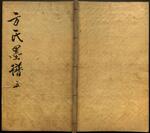 方氏墨譜 五